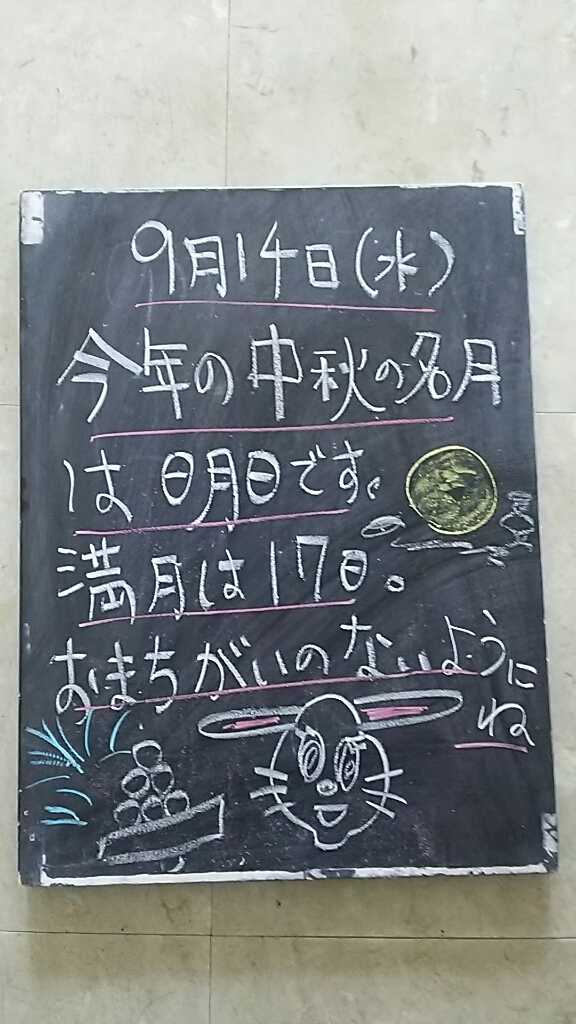 9月14日(水)
今年の中秋の名月
は明日です。
満月は17日。
おまちがいのないように
ね